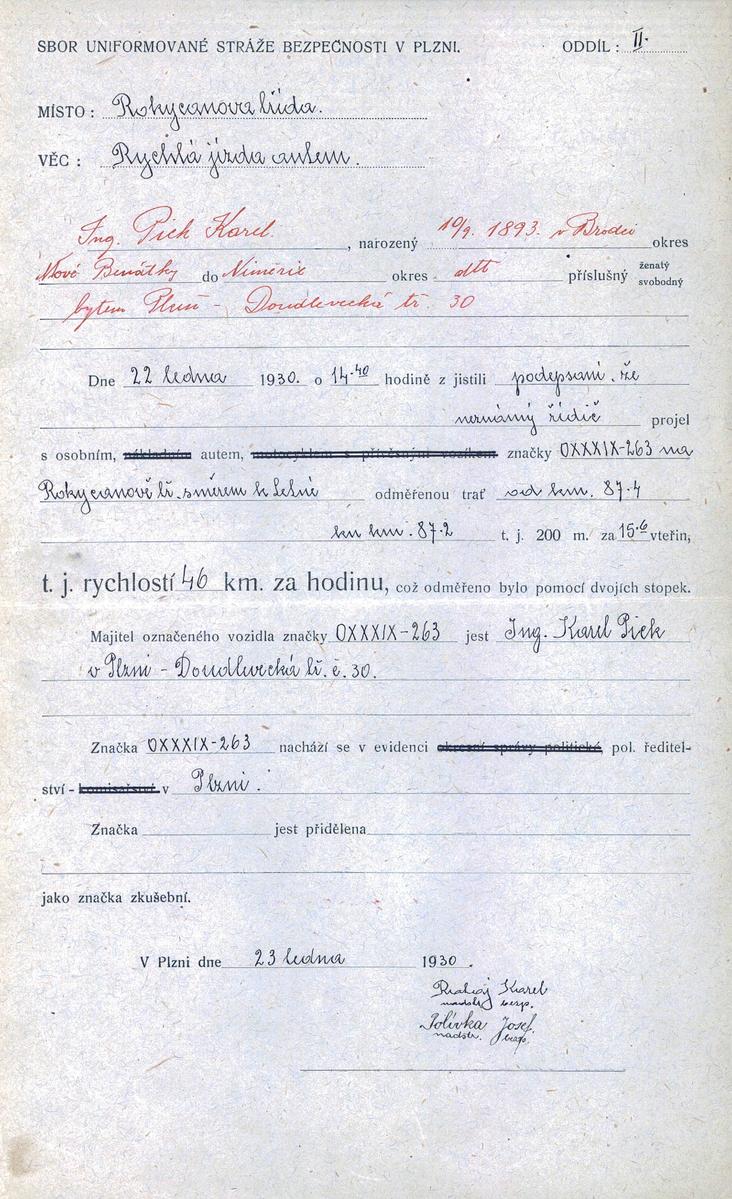 SBOR UNIFORMOVANÉ STRÁŽE BEZPEČNOSTI V PLZNI. ODDÍL: II.
MÍSTO: Rokycanova třída.
VĚC: Rychlá jízda autem.
Ing. Pick Karel, narozený 10/9. 1893. v Brodci okres
Nové Benátky do Niměřic okres dtt příslušný ženatý svobodný
bytem Plzeň - Doudlevecká tř. 30
Dne 22 ledna 1930. o 14·40 hodině z jistili podepsaní, že
neznámý řidič projel
s osobním, nákladním autem, motocyklem s přívěsným vozíkem značky OXXXIX-263 na
Rokycanově tř. směrem k Letné odměřenou trať od km. 87·4
ku km. 87·2 t. j. 200 m. za 15·6 vteřin,
t. j. rychlostí 46 km. za hodinu, což odměřeno bylo pomocí dvojích stopek.
Majitel označeného vozidla značky OXXXIX-263 jest Ing. Karel Pick
v Plzni - Doudlevecká tř. č. 30.
Značka OXXXIX-263 nachází se v evidenci okresní správy politické, pol. ředitel-
ství - komisařství v Plzni.
Značka jest přidělena
jako značka zkušební.
V Plzni dne 23 ledna 1930.
Karel
nadstr. bezp.
Polívka Josef.
nadstr. bezp.